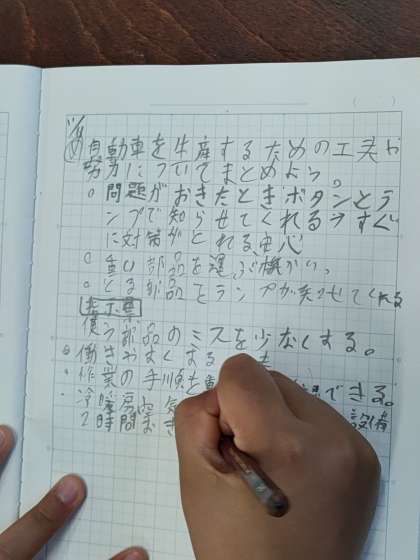 め 自動車を生産するための工夫や
努力についてまとめよう。
○問題がおきたときボタンとラ
ンプで知らせてくれる→すぐ
に対策がとれる、安心
○重い部品を運ぶ機かい。
○とる部品をランプが知らせてくれる
指示票
使う部品のミスを少なくする。
働きやすくする
・作業の手順を できる。
・冷暖房 気
2時間おき 設備